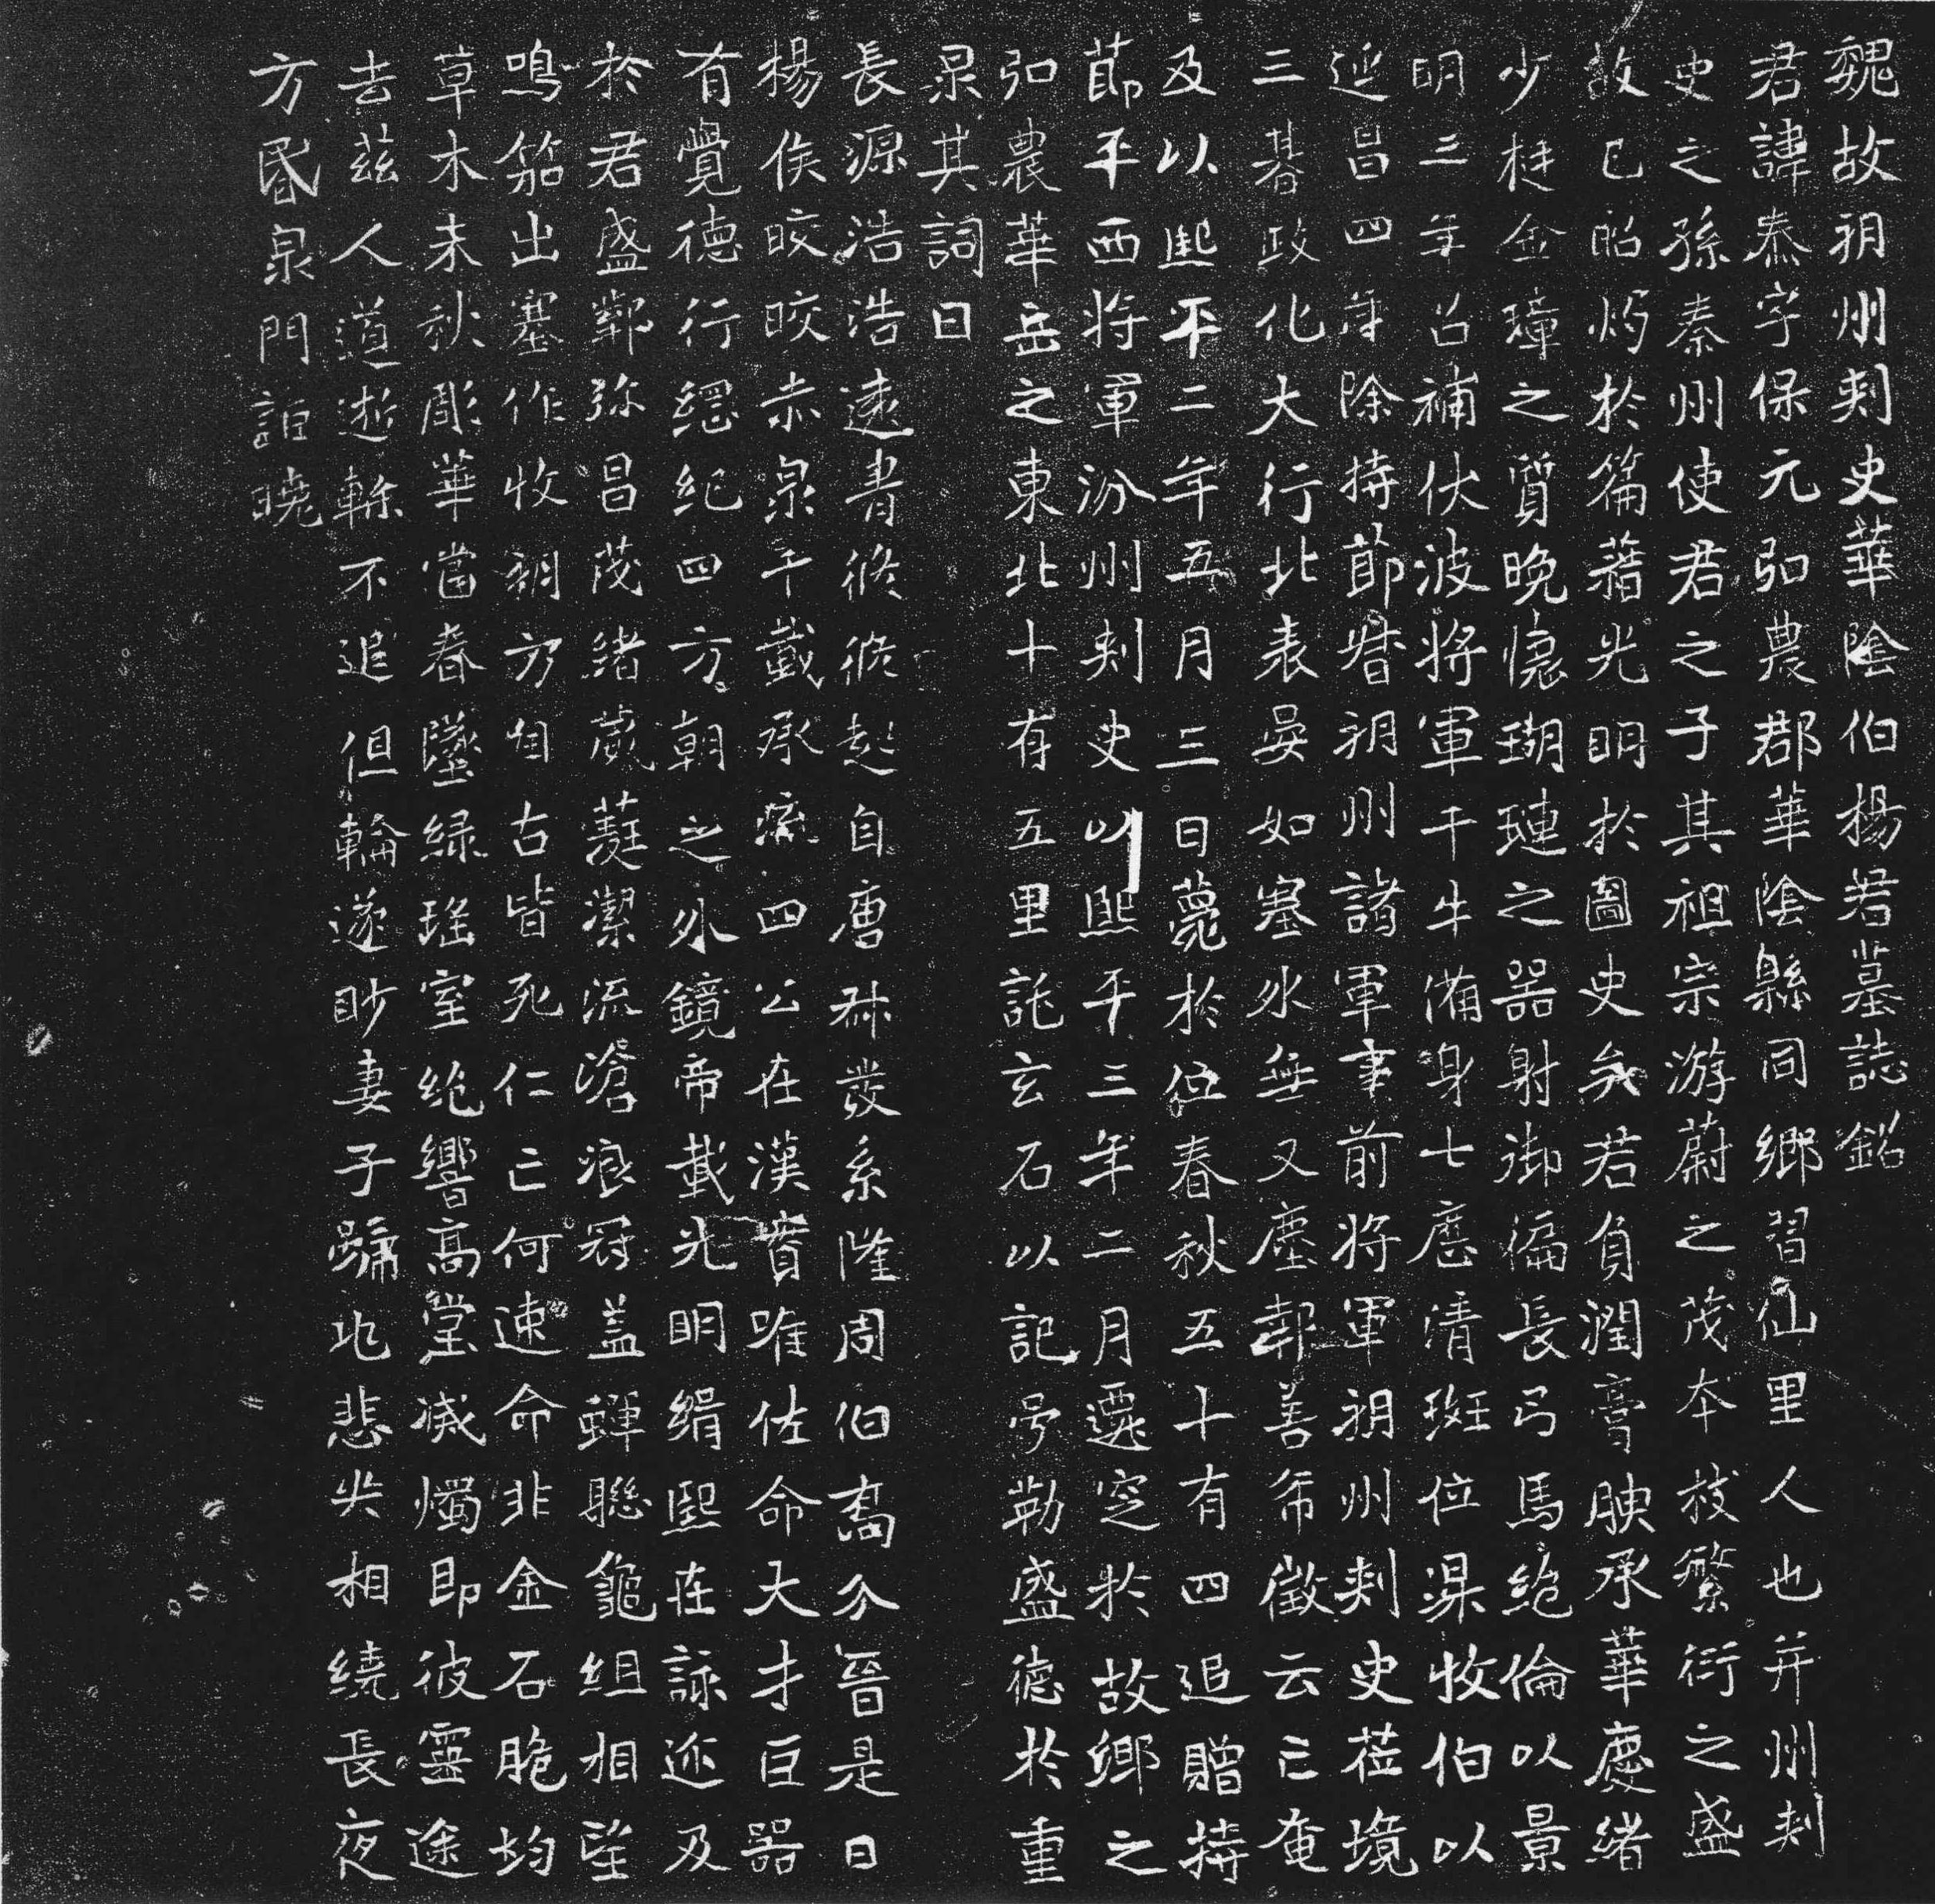 魏故朔州刺史華陰伯楊君墓誌銘
君諱泰字保元弘農郡華陰縣同鄉習仙里人也并州刺
史之孫秦州使君之子其祖宗游蔚之茂本枝繁衍之盛
故已昭灼於篇藉光明於圖史矣若負潤膏腴承華慶緒
少挺金璋之質晚懷瑚璉之器射御偏長弓馬絶倫以景
明三年召補伏波將軍千牛備身七歷清斑位渠牧伯以
延昌四年除持節督朔州諸軍事前將軍朔州刺史莅境
三朞政化大行北表晏如塞水無又塵鄣善帝徵云亡奄
及以熙平二年五月三日薨於位春秋五十有四追贈持
節平西將軍汾州刺史以熙平三年二月遷窆於故鄉之
弘農華岳之東北十有五里託玄石以記号勒盛德於重
泉其詞曰
長源浩浩遠胄脩脩起自唐叔發系隆周伯喬分晉是曰
楊侯皎皎赤泉千載承流四公在漢寶唯佐命大才巨器
有覺德行緦紀四方朝之水鏡帝載光明緝熙在詠迩及
於君盛鄣弥昌茂緒葳蕤潔流滄浪冠盖蟬聯龜組相望
鳴笳出塞作牧朔方自古皆死仁亡何速命非金石脆均
草木未秋彫華當春墜緑瑤室絶響高堂滅燭即彼靈途
去茲人道逝輬不追但輪遂眇妻子踊叫悲哭相繞長夜
方昏泉門詎曉